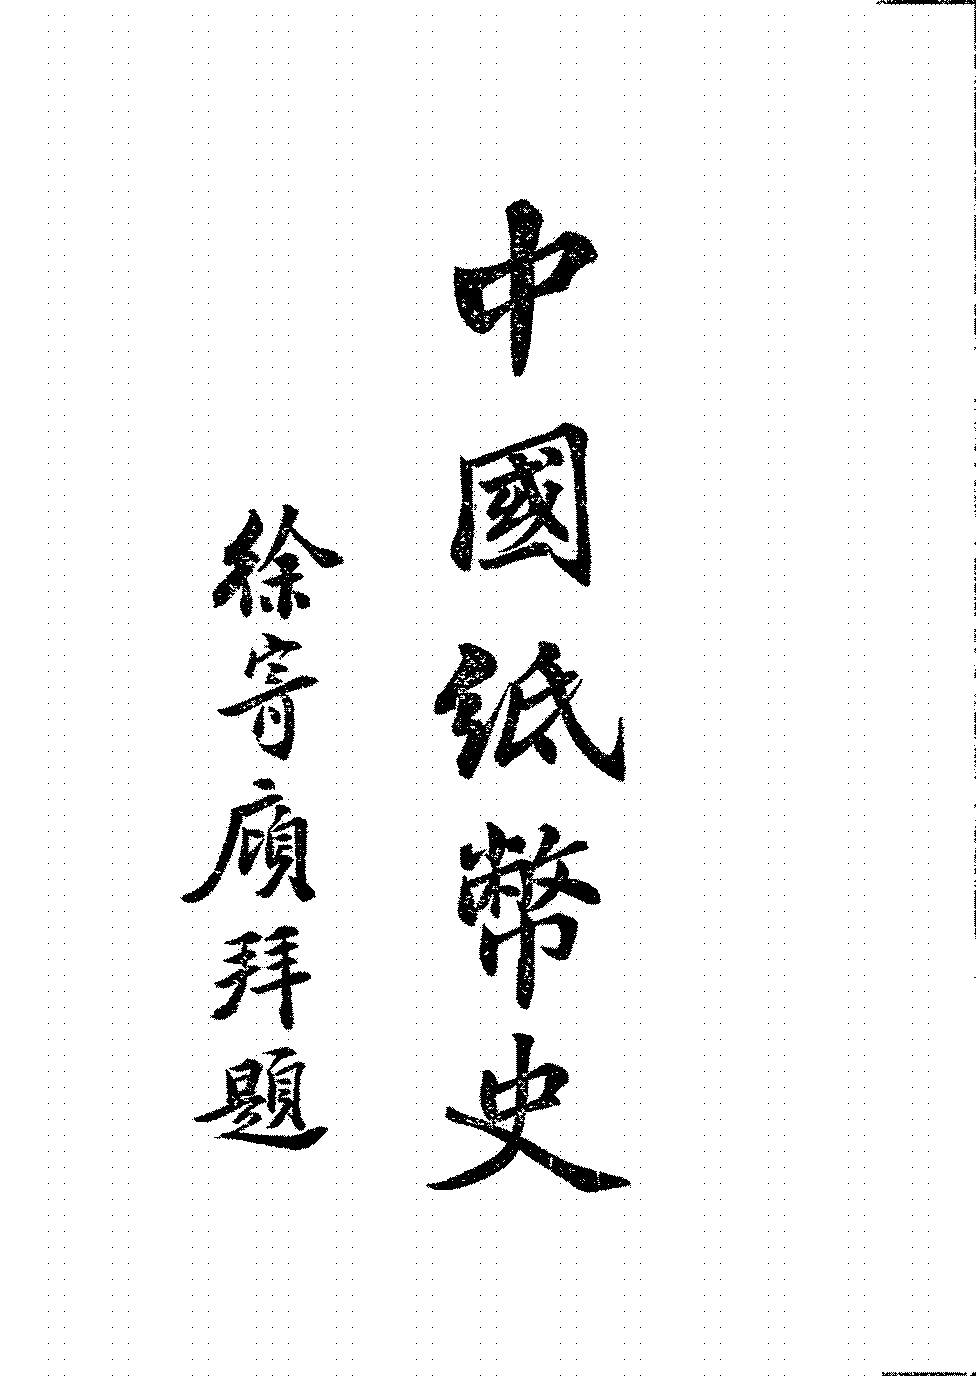 中國紙幣史
徐寄廎拜題